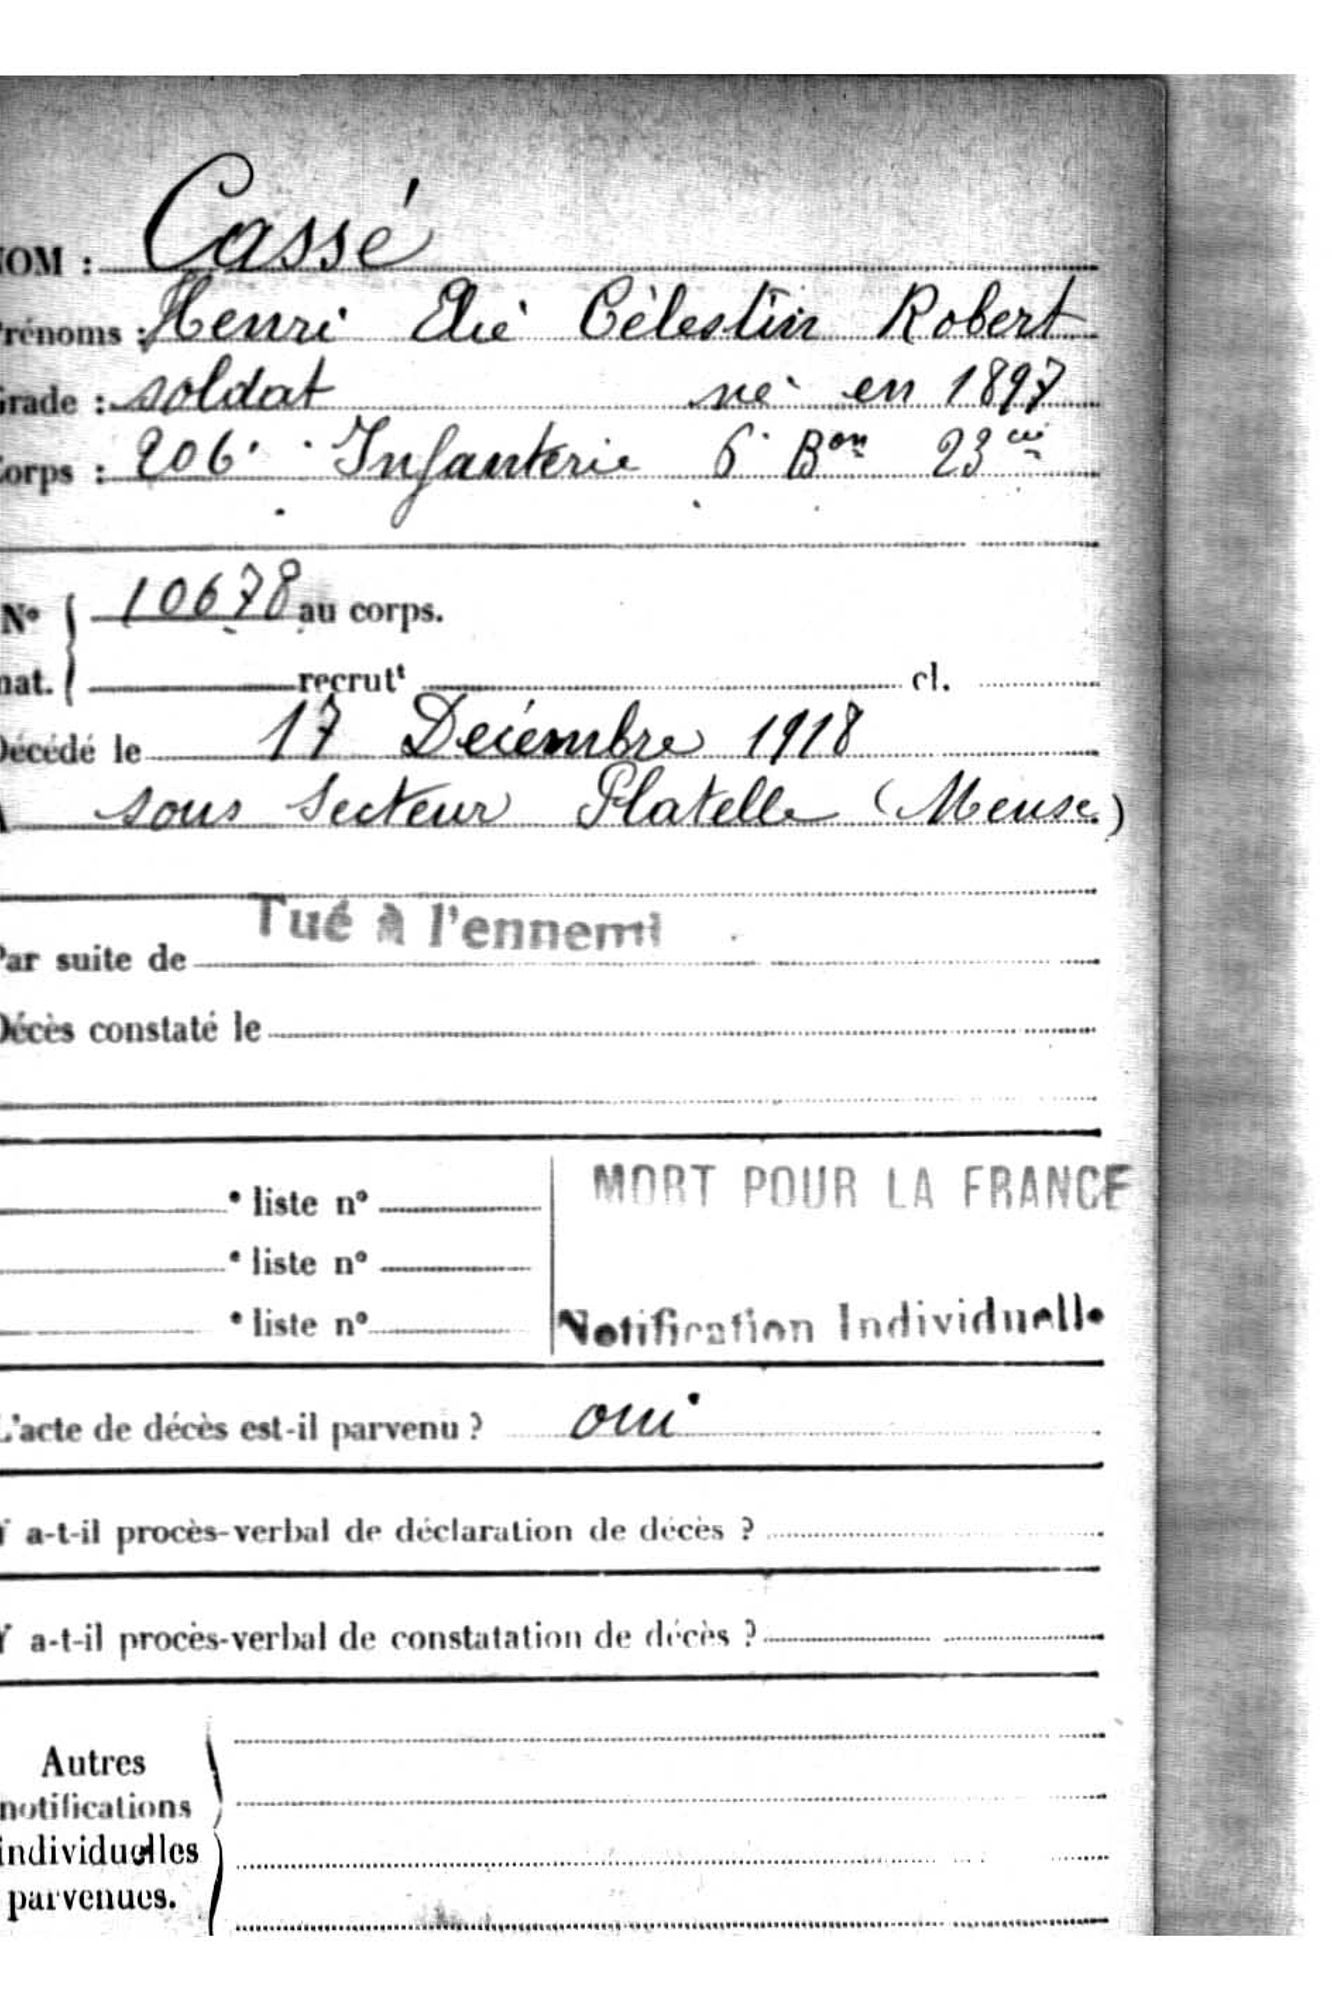 NOM : Cassé
Prénoms : Henri Elie Célestin Robert
Grade : soldat né en 1897
Corps : 206e Infanterie 6e Bon 23 cie
No 10678 au corps.
mat. recrutt cl.
Décédé le 17 Décembre 1918
A sous secteur Platelle (Meuse)
Tué à l'ennemi
Par suite de
Décès constaté le
• liste no MORT POUR LA FRANCE
• liste no
• liste no Notification Individuelle
L'acte de décès est-il parvenu ? oui
Y a-t-il procès-verbal de déclaration de décès ?
Y a-t-il procès-verbal de constatation de décès ?
Autres
notifications
individuelles
parvenues.